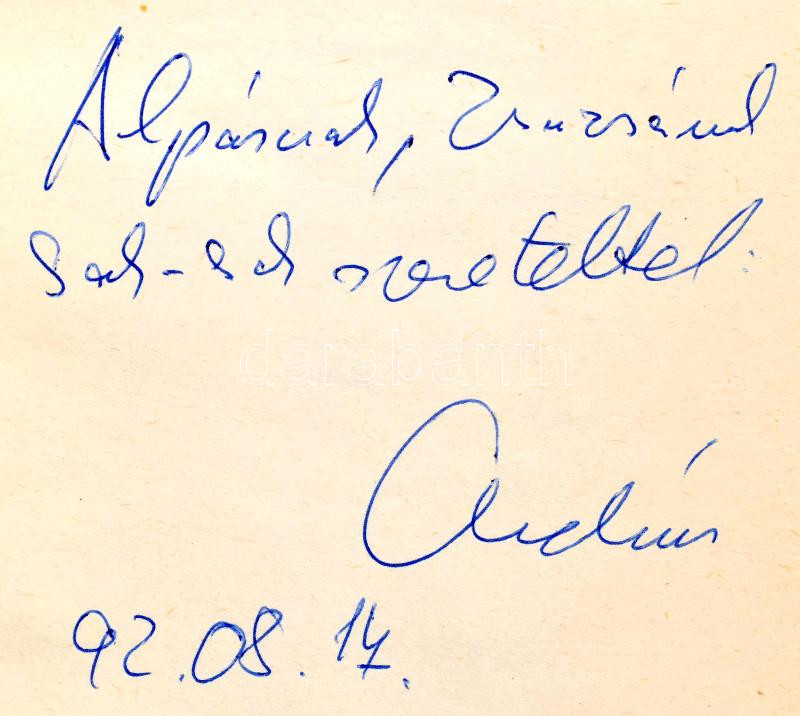 Alpárnak, Zsuzsának
sok-sok szeretettel:
darabanth
András
92.08.17.